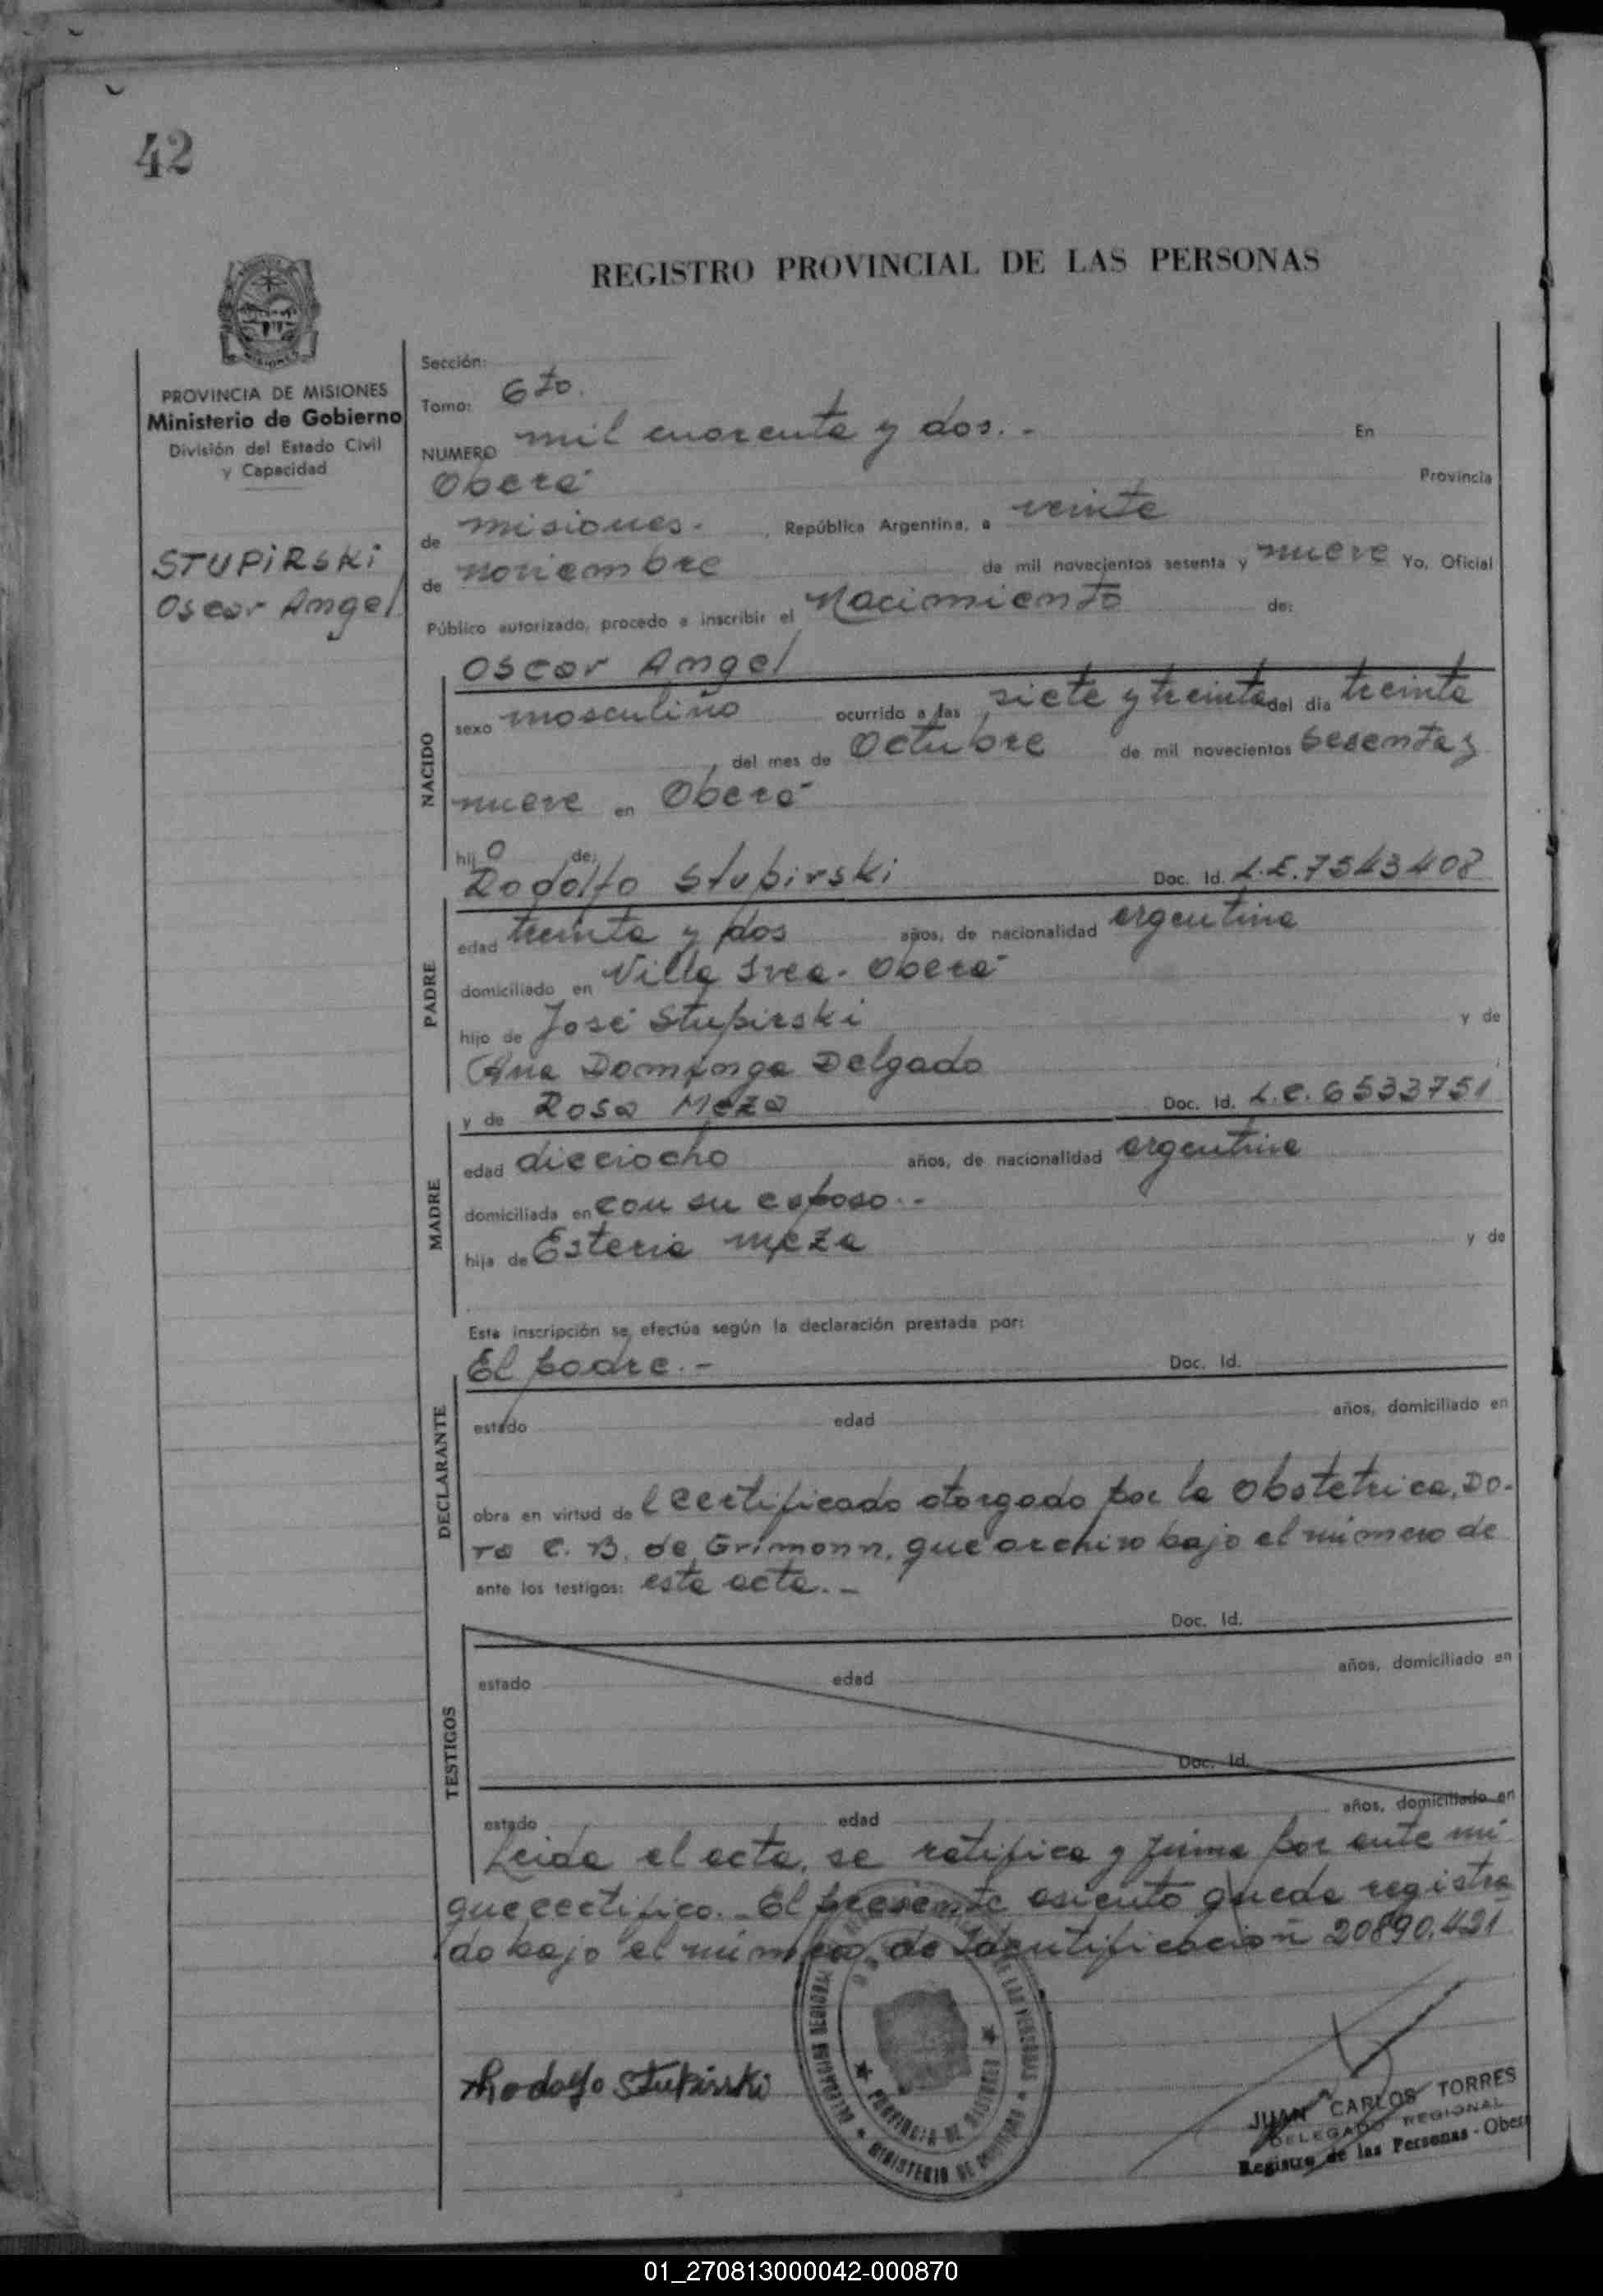 42
REGISTRO PROVINCIAL DE LAS PERSONAS
PROVINCIA DE MISIONES
Ministerio de Gobierno
División del Estado Civil
y Capacidad
STUPIRSKI
Oscar Angel
Sección:
Tomo: 6to.
NUMERO mil cuarenta y dos. - En
Oberá Provincia
de misiones. , República Argentina, a veinte
de noviembre de mil novecientos sesenta y nueve Yo, Oficial
Público autorizado, procedo a inscribir el Nacimiento de:
NACIDO
Oscar Angel
sexo masculino ocurrido a las siete y treinta del día treinta
, del mes de Octubre de mil novecientos sesenta y
nueve en Oberá
hijo de:
PADRE
Rodolfo Stupirski Doc. Id. L.E. 7543408
edad treinta y dos años, de nacionalidad argentina
domiciliado en Villa Svea - Oberá
hijo de José Stupirski y de
Ana Dominga Delgado
MADRE
y de Rosa Meza Doc. Id. L.C. 6533751
edad dieciocho años, de nacionalidad argentina
domiciliada en con su esposo. -
hija de Esteria meza y de
Esta inscripción se efectúa según la declaración prestada por:
DECLARANTE
El padre. - Doc. Id.
estado edad años, domiciliado en
obra en virtud de l certificado otorgado por la Obstetrica, Do-
ra C. B. de Grimonn, que archivo bajo el número de
ante los testigos: esta acta. -
TESTIGOS
Doc. Id.
estado edad años, domiciliado en
Doc. Id.
estado edad años, domiciliado en
Leida el acta, se ratifica y firma por ante mi
que certifico. - El presente asiento queda registra
do bajo el número de Identificación 20890.421
Rhodolfo Stupirski
DELEGACION REGIONAL
DE LAS PERSONAS
PROVINCIA DE MISIONES
MINISTERIO DE GOBIERNO
JUAN CARLOS TORRES
DELEGADO REGIONAL
Registro de las Personas - Oberá
01_270813000042-000870